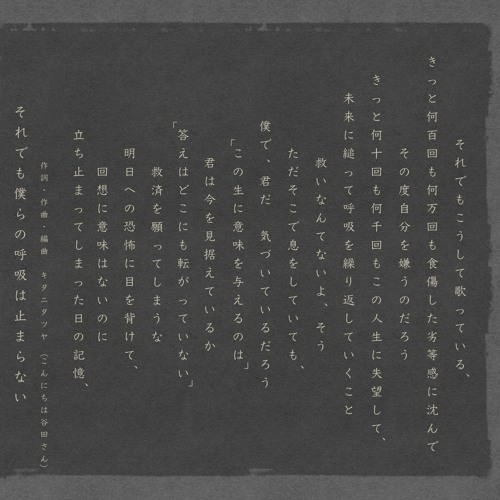 それでも僕らの呼吸は止まらない
作詞・作曲・編曲　キタニタツヤ（こんにちは谷田さん）
立ち止まってしまった日の記憶、
回想に意味はないのに
明日への恐怖に目を背けて、
救済を願ってしまうな
「答えはどこにも転がっていない」
君は今を見据えているか
「この生に意味を与えるのは」
僕で、君だ　気づいているだろう
ただそこで息をしていても、
救いなんてないよ、そう
未来に縋って呼吸を繰り返していくこと
きっと何十回も何千回もこの人生に失望して、
その度自分を嫌うのだろう
きっと何百回も何万回も食傷した劣等感に沈んで
それでもこうして歌っている、